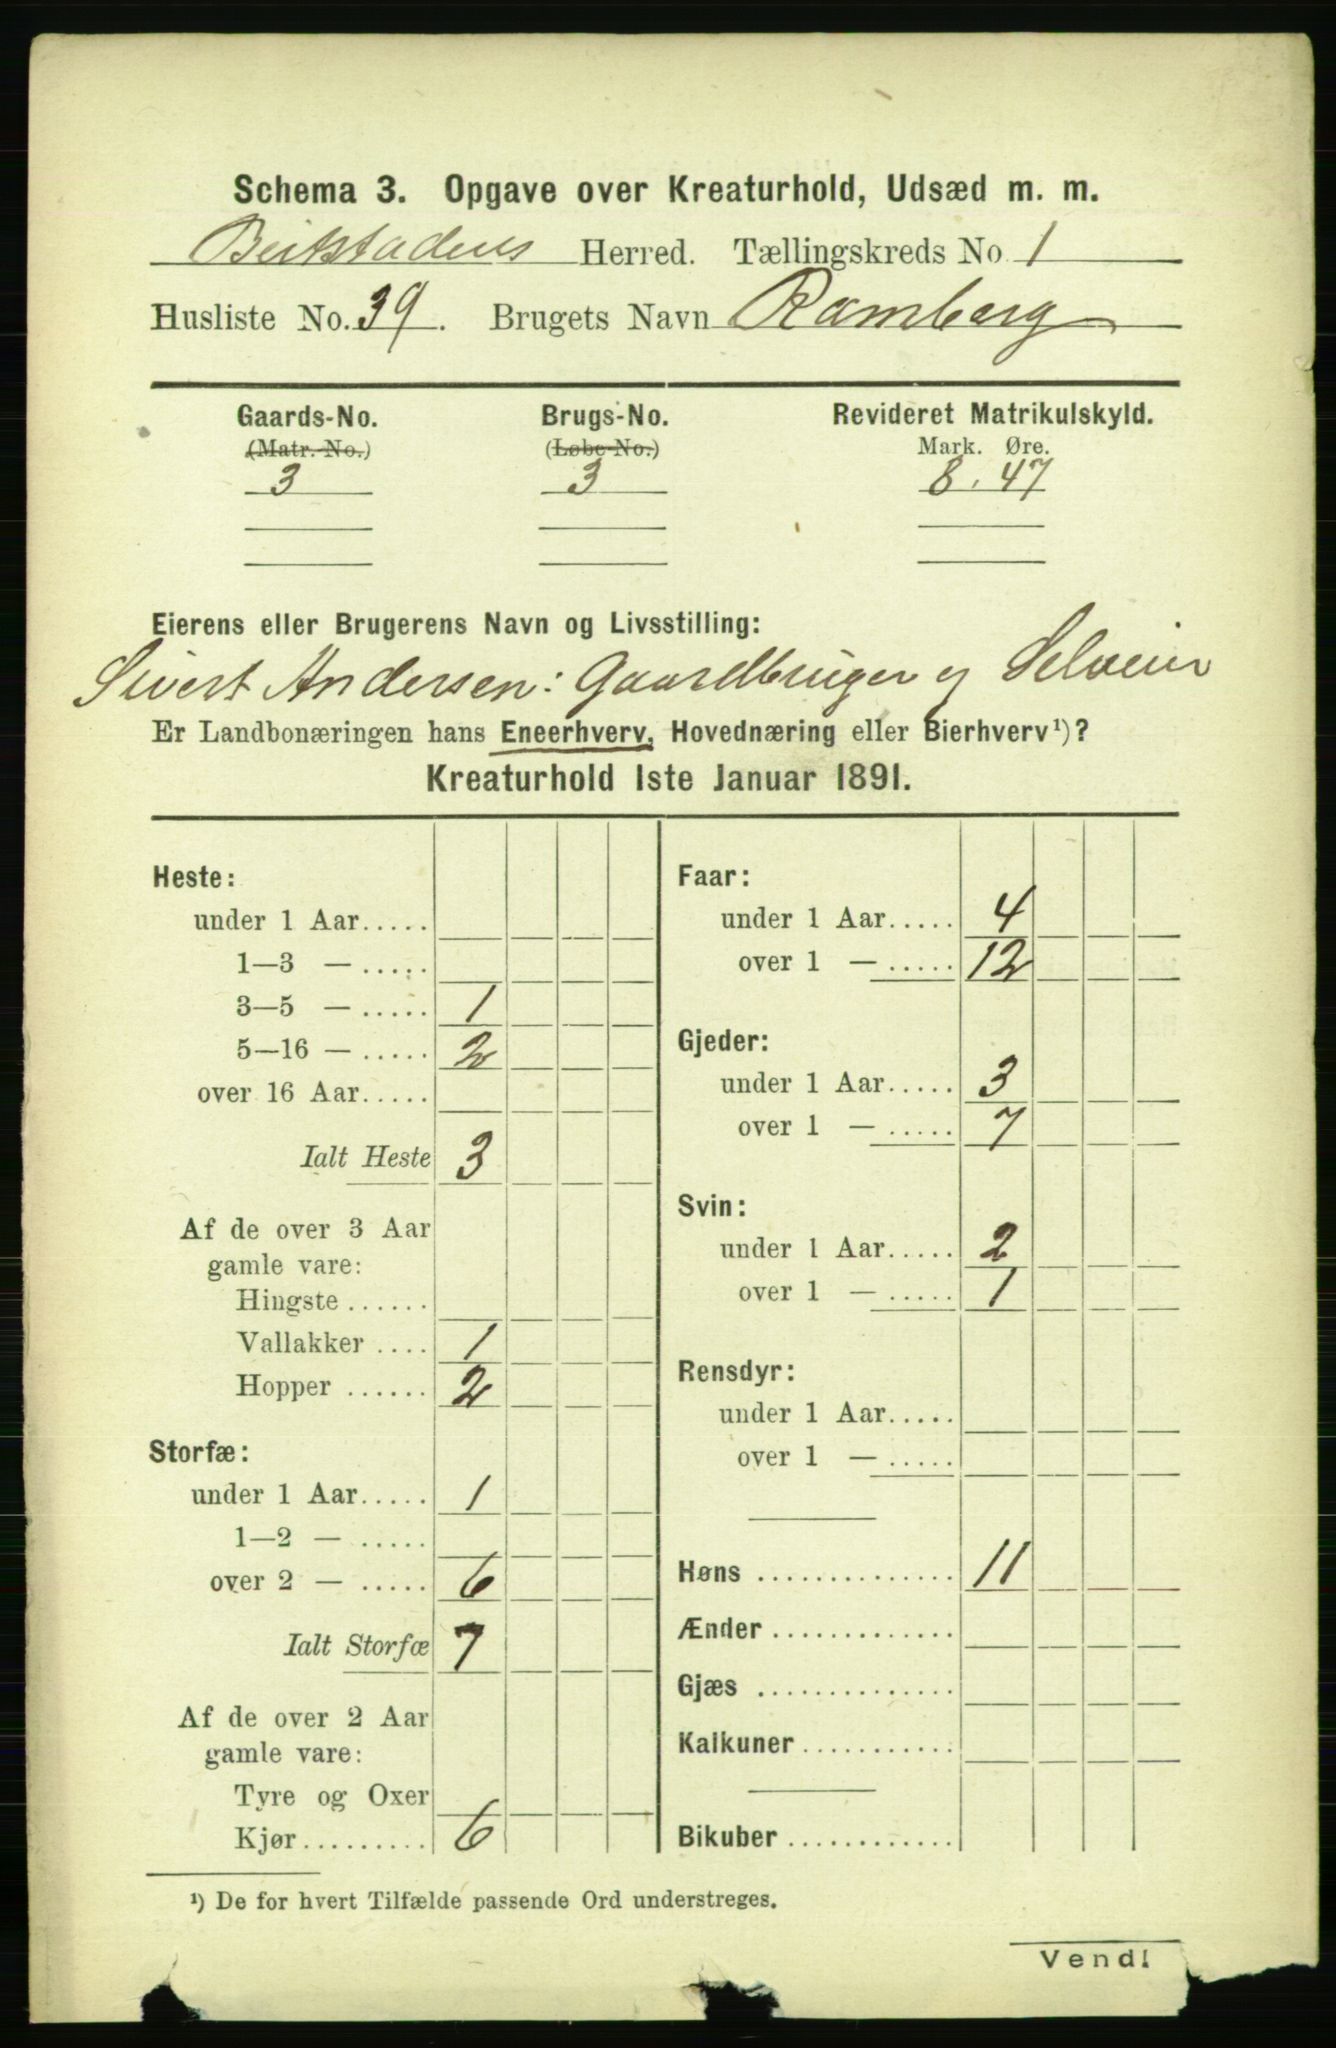 Schema 3. Opgave over Kreaturhold, Udsæd m. m.
Beitstadens Herred. Tællingskreds No. 1
Husliste No. 39. Brugets Navn Ramberg
Gaards-No. Brugs-No. Revideret Matrikulskyld.
(Matr.-No.) (Løbe-No.) Mark. Øre.
3 3 8. 47
Eierens eller Brugerens Navn og Livsstilling:
Sivert Andersen: Gaardbruger og Selveier
Er Landbonæringen hans Eneerhverv, Hovednæring eller Bierhverv¹)?
Kreaturhold 1ste Januar 1891.
Heste:
under 1 Aar.....
1—3 — .....
3—5 — ..... 1
5—16 — ..... 2
over 16 Aar.....
Ialt Heste 3
Af de over 3 Aar
gamle vare:
Hingste ......
Vallakker .... 1
Hopper ...... 2
Storfæ:
under 1 Aar..... 1
1—2 — .....
over 2 — ..... 6
Ialt Storfæ 7
Af de over 2 Aar
gamle vare:
Tyre og Oxer
Kjør......... 6
Faar:
under 1 Aar..... 4
over 1 — ..... 12
Gjeder:
under 1 Aar..... 3
over 1 — ..... 7
Svin:
under 1 Aar..... 2
over 1 — ..... 1
Rensdyr:
under 1 Aar.....
over 1 — .....
Høns .............. 11
Ænder .............
Gjæs ..............
Kalkuner...........
Bikuber ............
¹) De for hvert Tilfælde passende Ord understreges.
Vend!